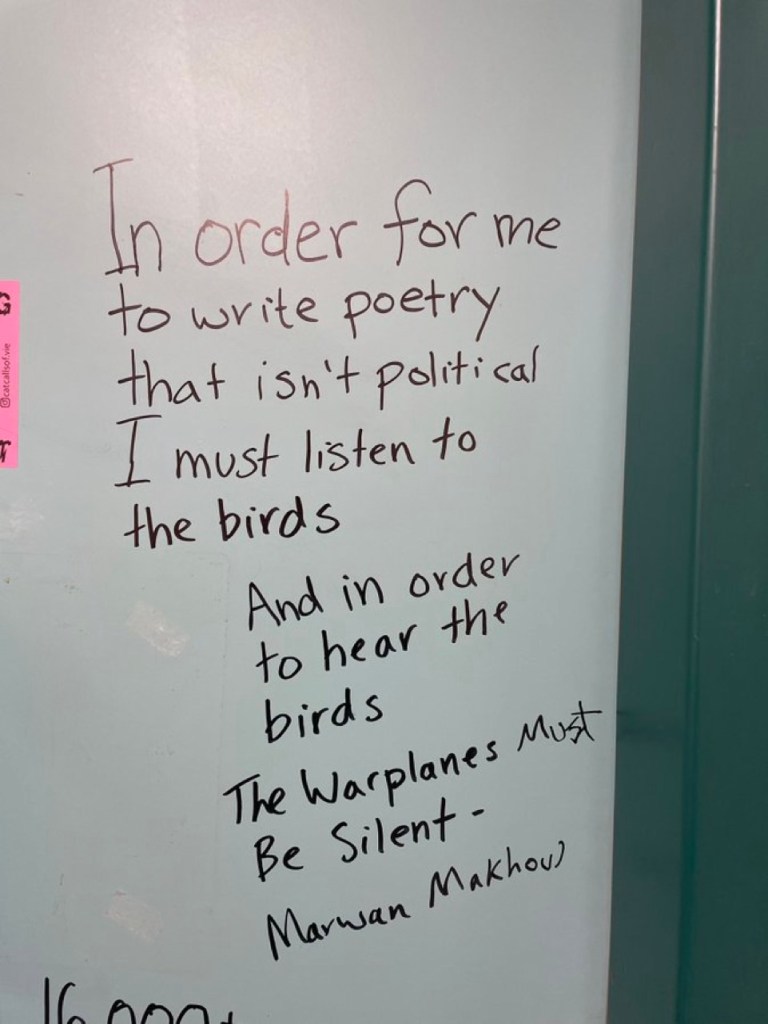 In order for me
to write poetry
that isn't political
I must listen to
the birds
And in order
to hear the
birds
The Warplanes Must
Be Silent -
Marwan Makhoul
@catcallsof.vie
16,000+